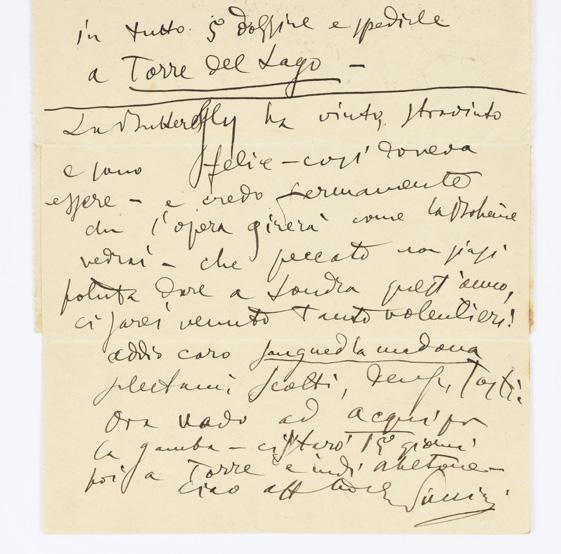 in tutto 5 dozzine e spedirle
a Torre del Lago –
La Butterfly ha vinto, stravinto
e sono felice – così doveva
essere – e credo fermamente
che l'opera girerà come la Bohème
vedrai – che peccato non siasi
potuta dare a Londra quest'anno,
ci sarei venuto tanto volentieri!
addio caro sanguedlamadona
Scotti, Tosti.
Ora vado ad Acqui per
la gamba – ci starò 15 giorni
poi a Torre e indi Abetone –
ciao aff Puccini